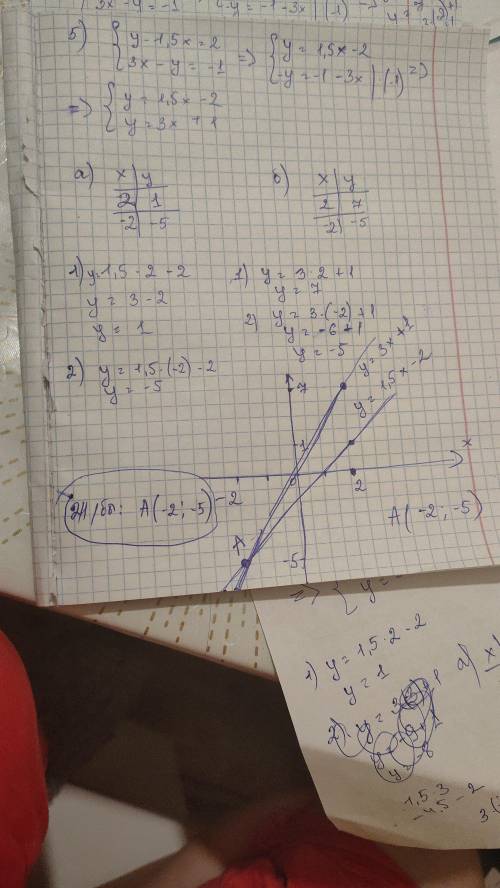 5) { y - 1,5x = 2
3x - y = -1 => { y = 1,5x - 2
-y = -1 - 3x | (-1) =>
=> { y = 1,5x - 2
y = 3x + 1
а) x | y
2 | 1
-2 | -5
б) x | y
2 | 7
-2 | -5
1) y = 1,5 · 2 - 2
y = 3 - 2
y = 1
2) y = 1,5 · (-2) - 2
y = -5
1) y = 3 · 2 + 1
y = 7
2) y = 3 · (-2) + 1
y = -6 + 1
y = -5
y = 3x + 1
y = 1,5x - 2
7
1
0
x
-2
2
A
-5
A(-2; -5)
A(-2; -5)
=> { y =
1) y = 1,5 · 2 - 2
y = 1
а) x
2)
1,5 · 3 - 2